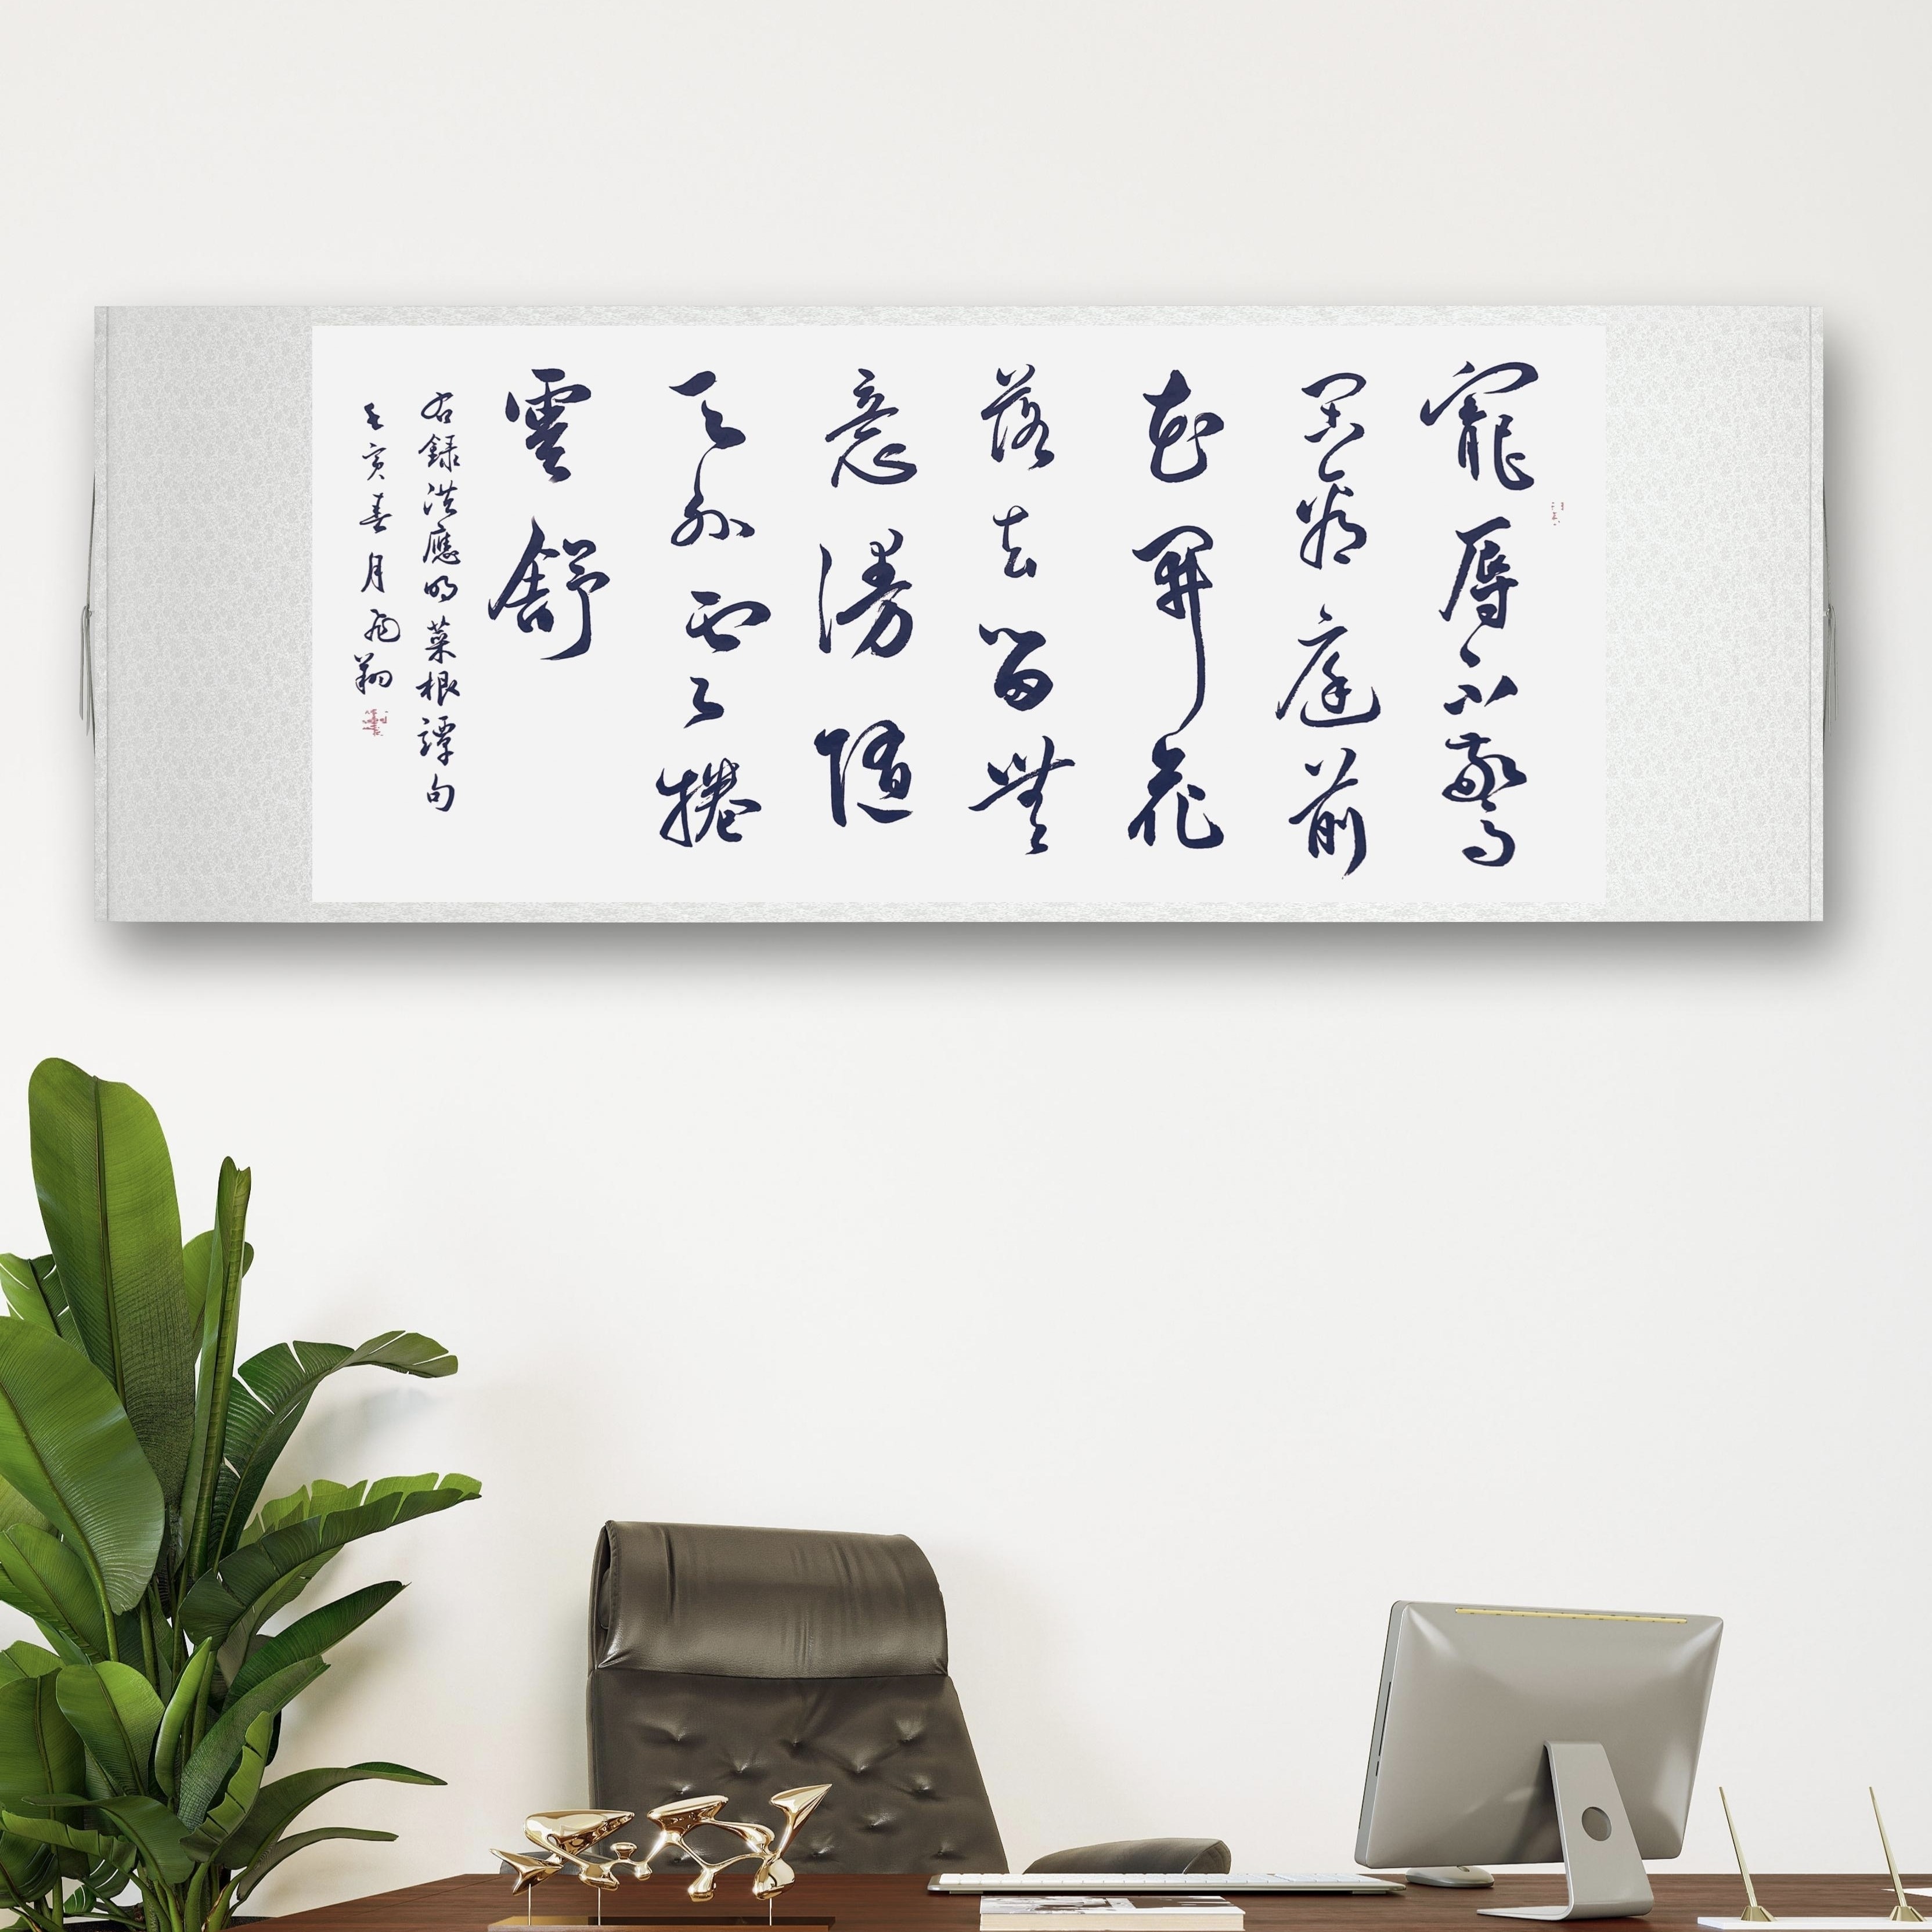 寵辱不驚
閒看庭前
花開花
落去留無
意漫隨
天外雲捲
雲舒
右錄洪應明菜根譚句
壬寅春月飛翔